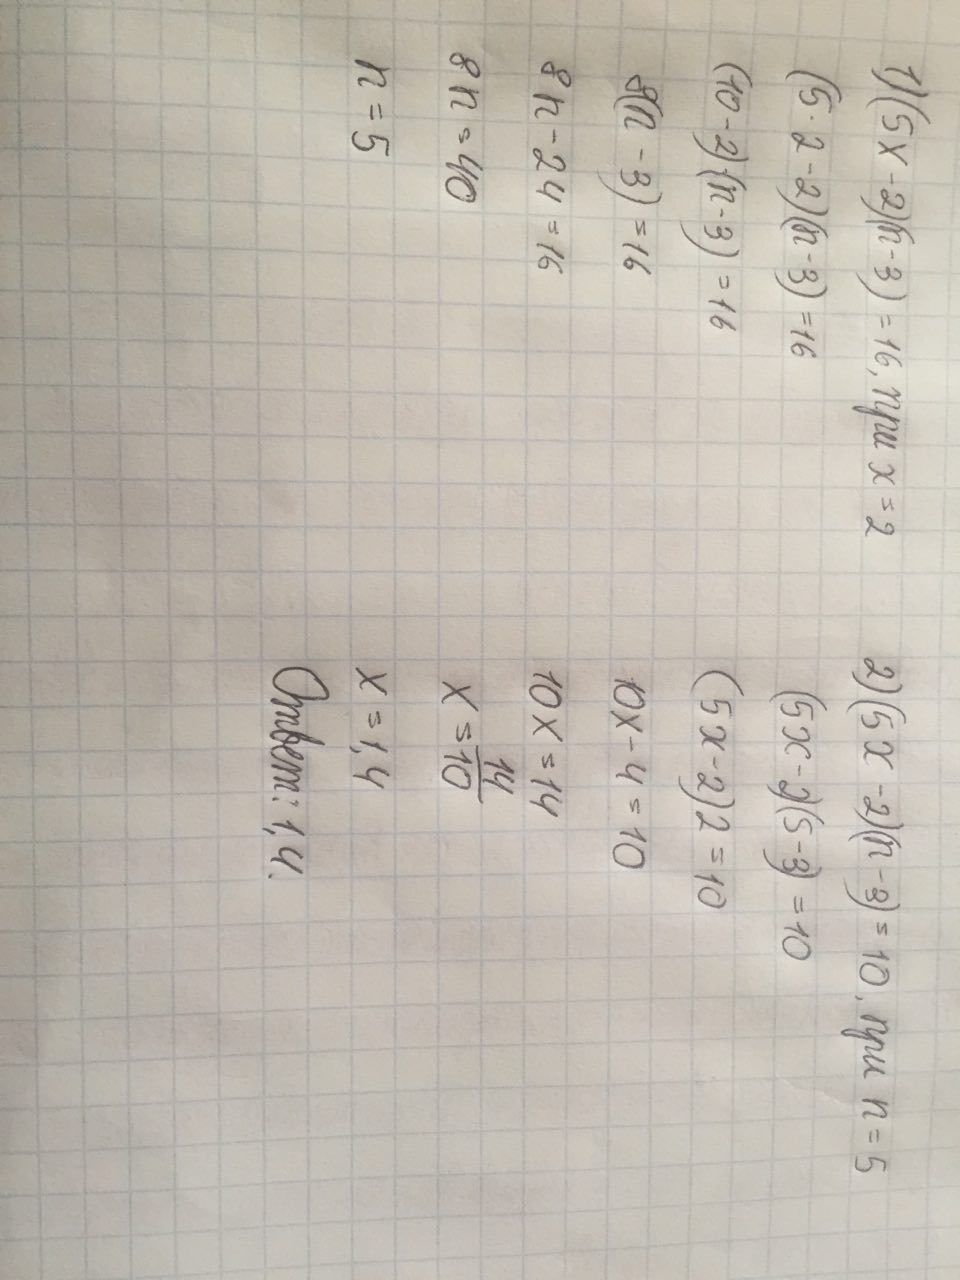 1)(5x-2)(n-3)=16, при x=2
(5·2-2)(n-3)=16
(10-2)(n-3)=16
8(n-3)=16
8n-24=16
8n=40
n=5
2)(5x-2)(n-3)=10, при n=5
(5x-2)(5-3)=10
(5x-2)2=10
10x-4=10
10x=14
x=14/10
x=1,4
Ответ: 1,4.